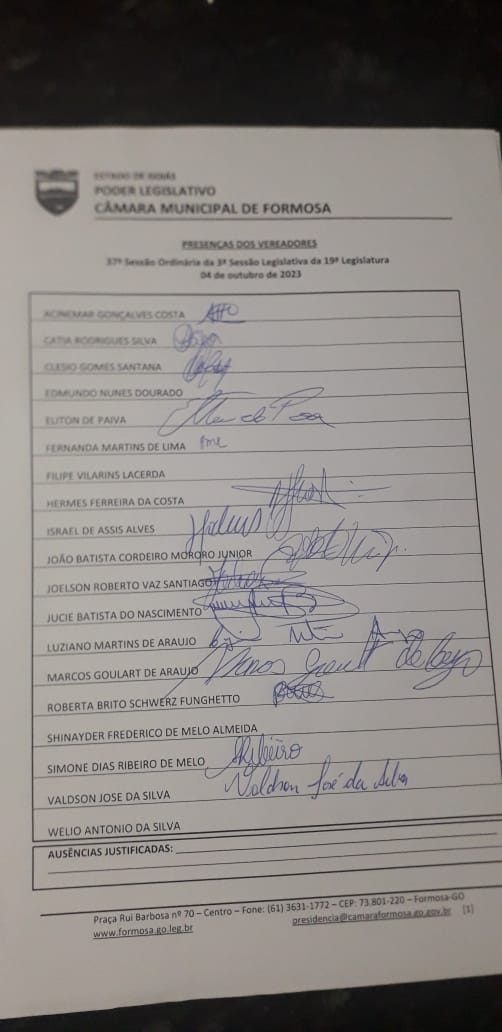 ESTADO DE GOIÁS
PODER LEGISLATIVO
CÂMARA MUNICIPAL DE FORMOSA
PRESENÇAS DOS VEREADORES
37ª Sessão Ordinária da 3ª Sessão Legislativa da 19ª Legislatura
04 de outubro de 2023
ACINEMAR GONÇALVES COSTA
CATIA RODRIGUES SILVA
CLESIO GOMES SANTANA
EDMUNDO NUNES DOURADO
ELITON DE PAIVA
FERNANDA MARTINS DE LIMA
FILIPE VILARINS LACERDA
HERMES FERREIRA DA COSTA
ISRAEL DE ASSIS ALVES
JOÃO BATISTA CORDEIRO MORORO JUNIOR
JOELSON ROBERTO VAZ SANTIAGO
JUCIE BATISTA DO NASCIMENTO
LUZIANO MARTINS DE ARAUJO
MARCOS GOULART DE ARAUJO
ROBERTA BRITO SCHWERZ FUNGHETTO
SHINAYDER FREDERICO DE MELO ALMEIDA
SIMONE DIAS RIBEIRO DE MELO SRibeiro
VALDSON JOSE DA SILVA Valdson José da Silva
WELIO ANTONIO DA SILVA
AUSÊNCIAS JUSTIFICADAS:
Praça Rui Barbosa nº 70 – Centro – Fone: (61) 3631-1772 – CEP: 73.801-220 – Formosa-GO
www.formosa.go.leg.br presidencia@camaraformosa.go.gov.br [1]